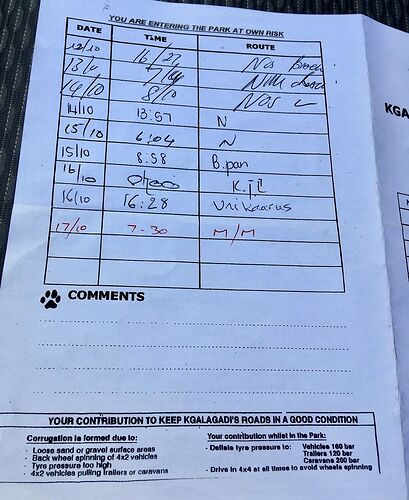 YOU ARE ENTERING THE PARK AT OWN RISK
DATE TIME ROUTE
12/10 16/27 Nos
13/
14/10 8/10 Nos
14/10 13:57 N
15/10 6:04 N
15/10 8:58 B.pan
16/10 K.TC
16/10 16:28 Urikaarus
17/10 7-30 M/M
KGA
COMMENTS
YOUR CONTRIBUTION TO KEEP KGALAGADI'S ROADS IN A GOOD CONDITION
Corrugation is formed due to:
- Loose sand or gravel surface areas
- Back wheel spinning of 4x2 vehicles
- Tyre pressure too high
- 4x2 vehicles pulling trailers or caravans
Your contribution whilst in the Park:
- Deflate tyre pressure to: Vehicles 160 bar
Trailers 120 bar
Caravans 200 bar
- Drive in 4x4 at all times to avoid wheels spinning